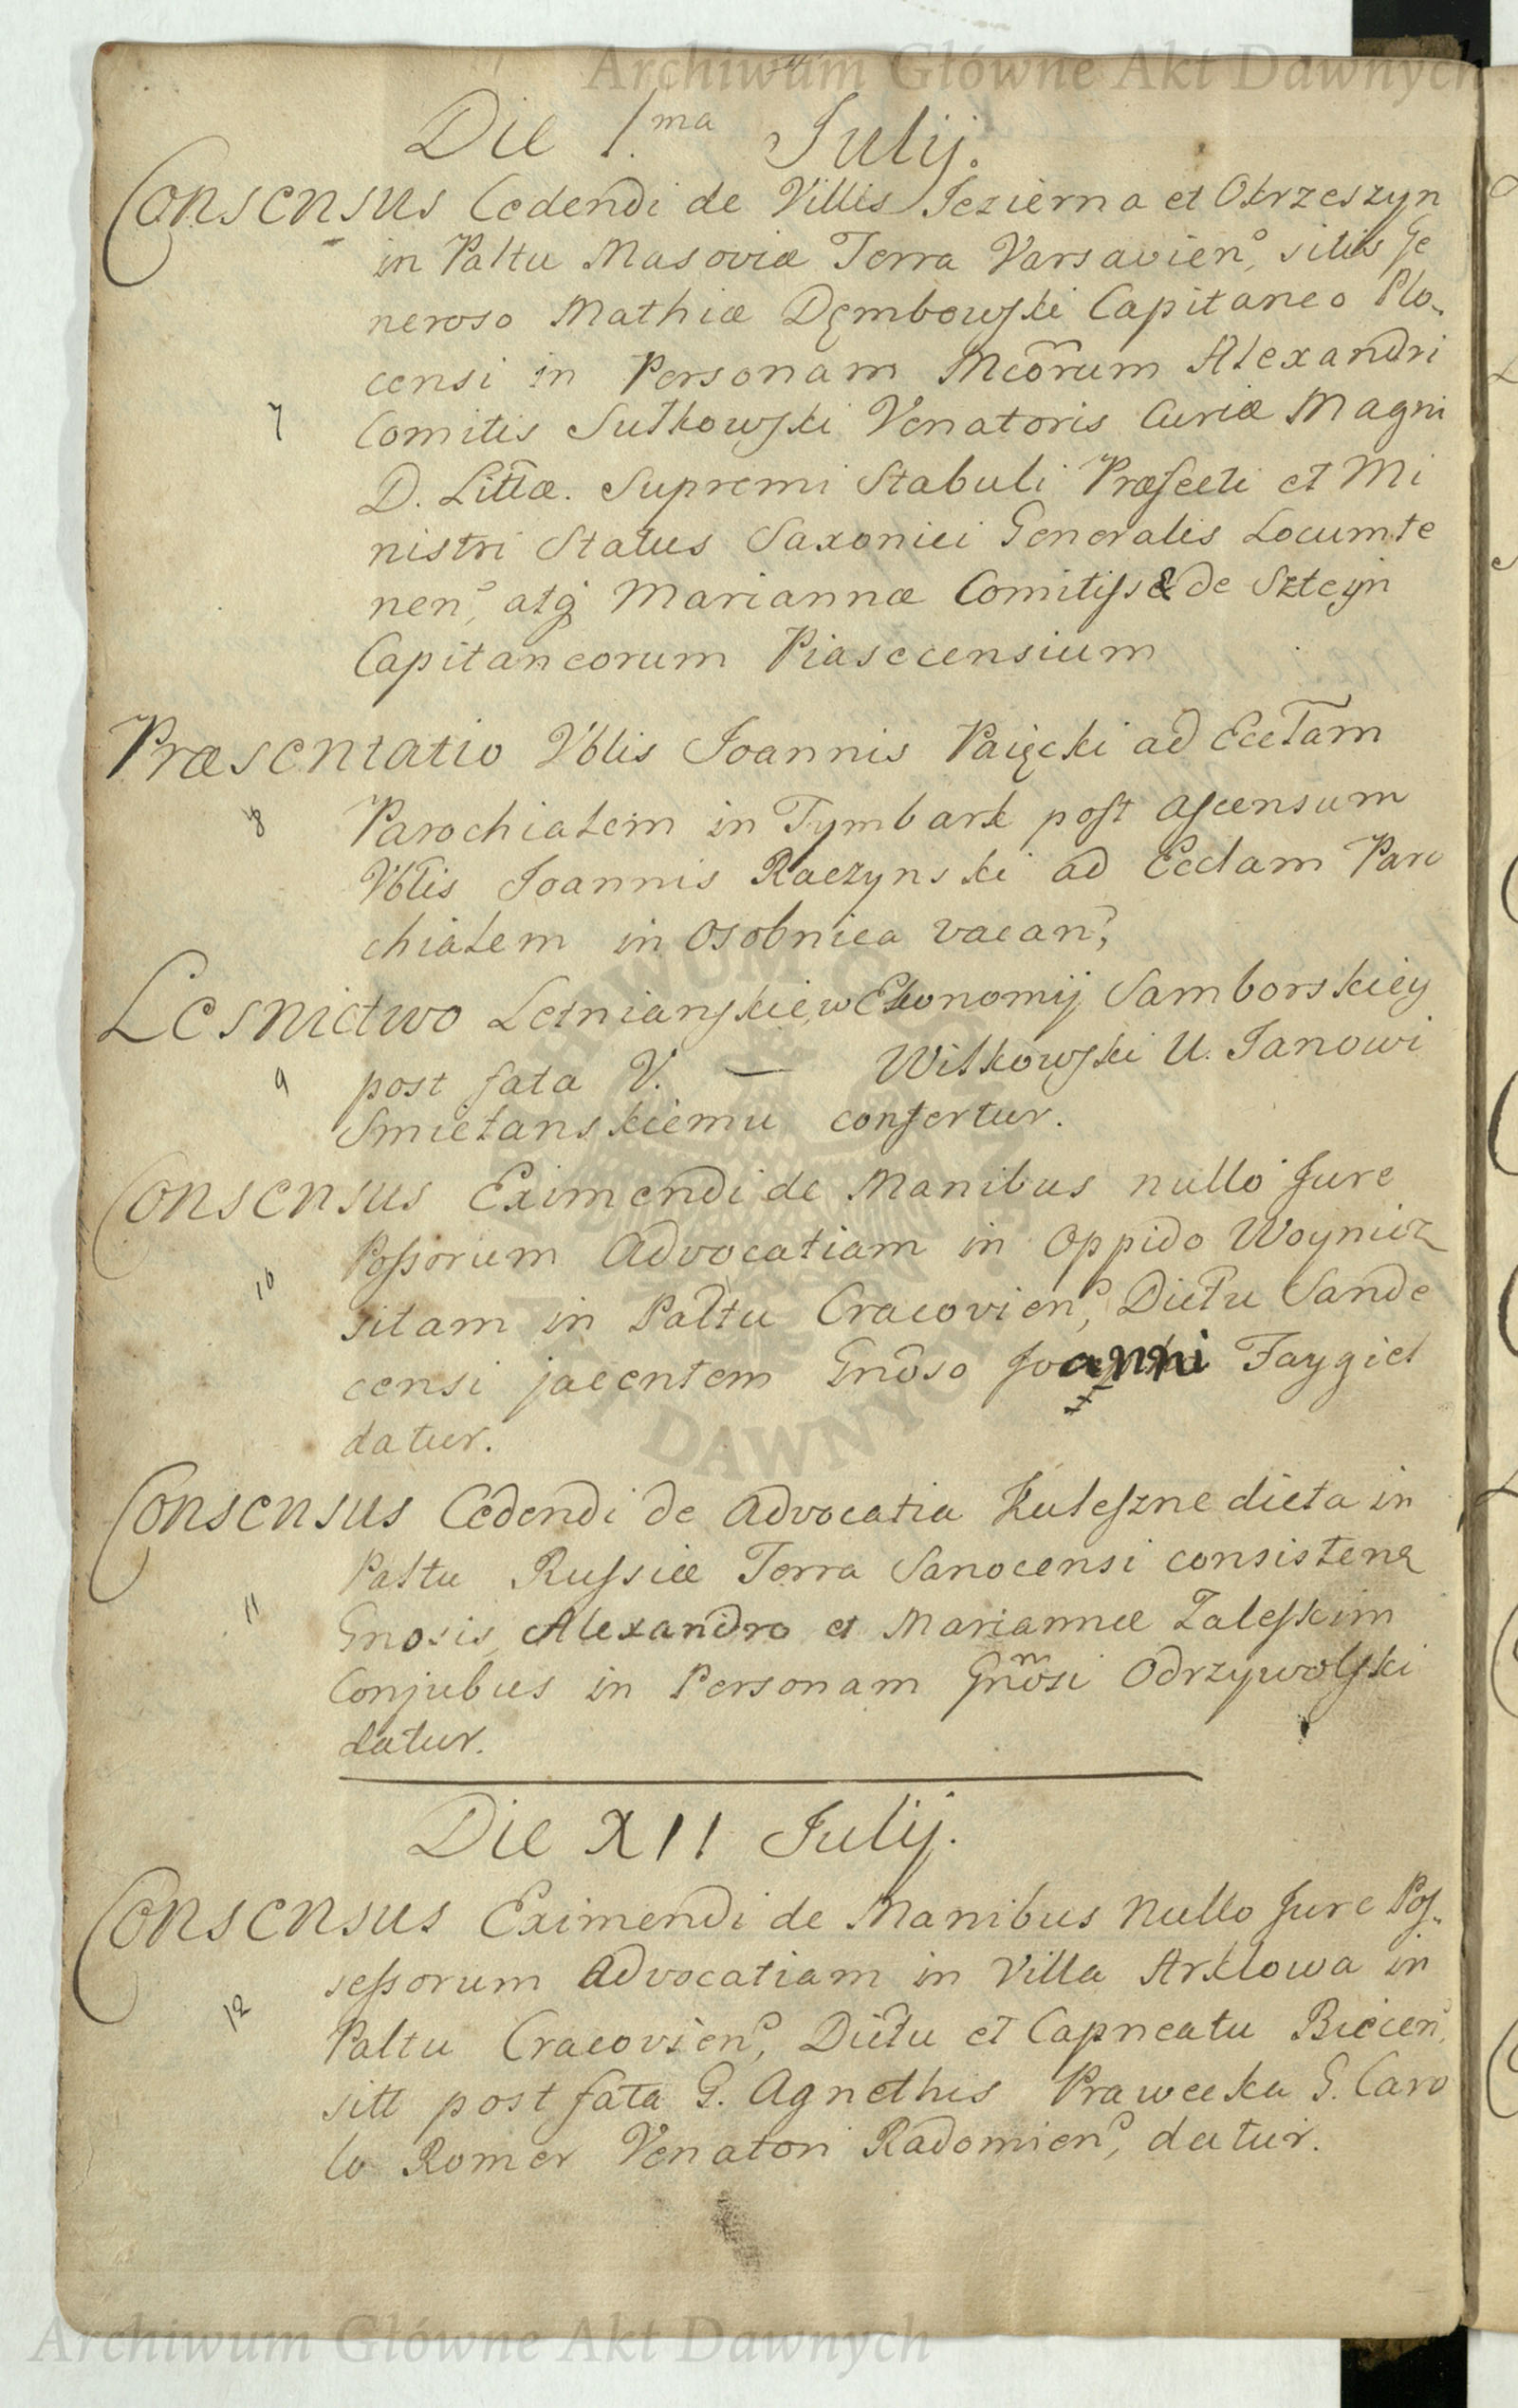 Archiwum Główne Akt Dawnych
Die 1.ma Julij.
Consensus Cedendi de Villis Jezierna et Obrzeszyn
in Paltu Masoviæ Terra Varsavien, sitis Ge
neroso Mathiæ Dęmbowski Capitaneo Plo-
censi in Personam Mcorum Alexandri
7
Comitis Sułkowski Venatoris Curiæ Magni
D. Littæ. Supremi Stabuli Præfecti et Mi
nistri Status Saxonici Generalis Locumte
nen, atq Mariannæ Comitissæ de Szteyn
Capitaneorum Piasecensium
Præsentatio Vblis Joannis Paięcki ad Eccłam
8
Parochialem in Tymbark post ascensum
Vblis Joannis Raczynski ad Ecclam Paro
chialem in Osobnica vacan,
Lesnictwo Letnianskie w Ekonomij Samborskiey
9
post fata V. — Witkowski U. Janowi
Smietanskiemu confertur.
Consensus Eximendi de Manibus nullo Jure
Possorum Advocatiam in Oppido Woynicz
10
sitam in Paltu Cracovien, Dictu Sande
censi jacentem Gnoso Joanni Faygiel
datur.
Consensus Cedendi de Advocatia Kuleszne dicta in
Paltu Russiæ Terra Sanocensi consisten
11
Gnosis Alexandro et Mariannæ Zaleskim
Conjubus in Personam Gnosi Odrzywolski
datur.
Die XII Julij.
Consensus Eximendi de Manibus Nullo Jure Pos-
sessorum Advocatiam in Villa Arklowa in
12
Paltu Cracovien, Dictu et Capneatu Biecen,
sitt post fata G. Agnethis Prawecka G. Caro
lo Romer Venatori Radomien, datur.
Archiwum Główne Akt Dawnych